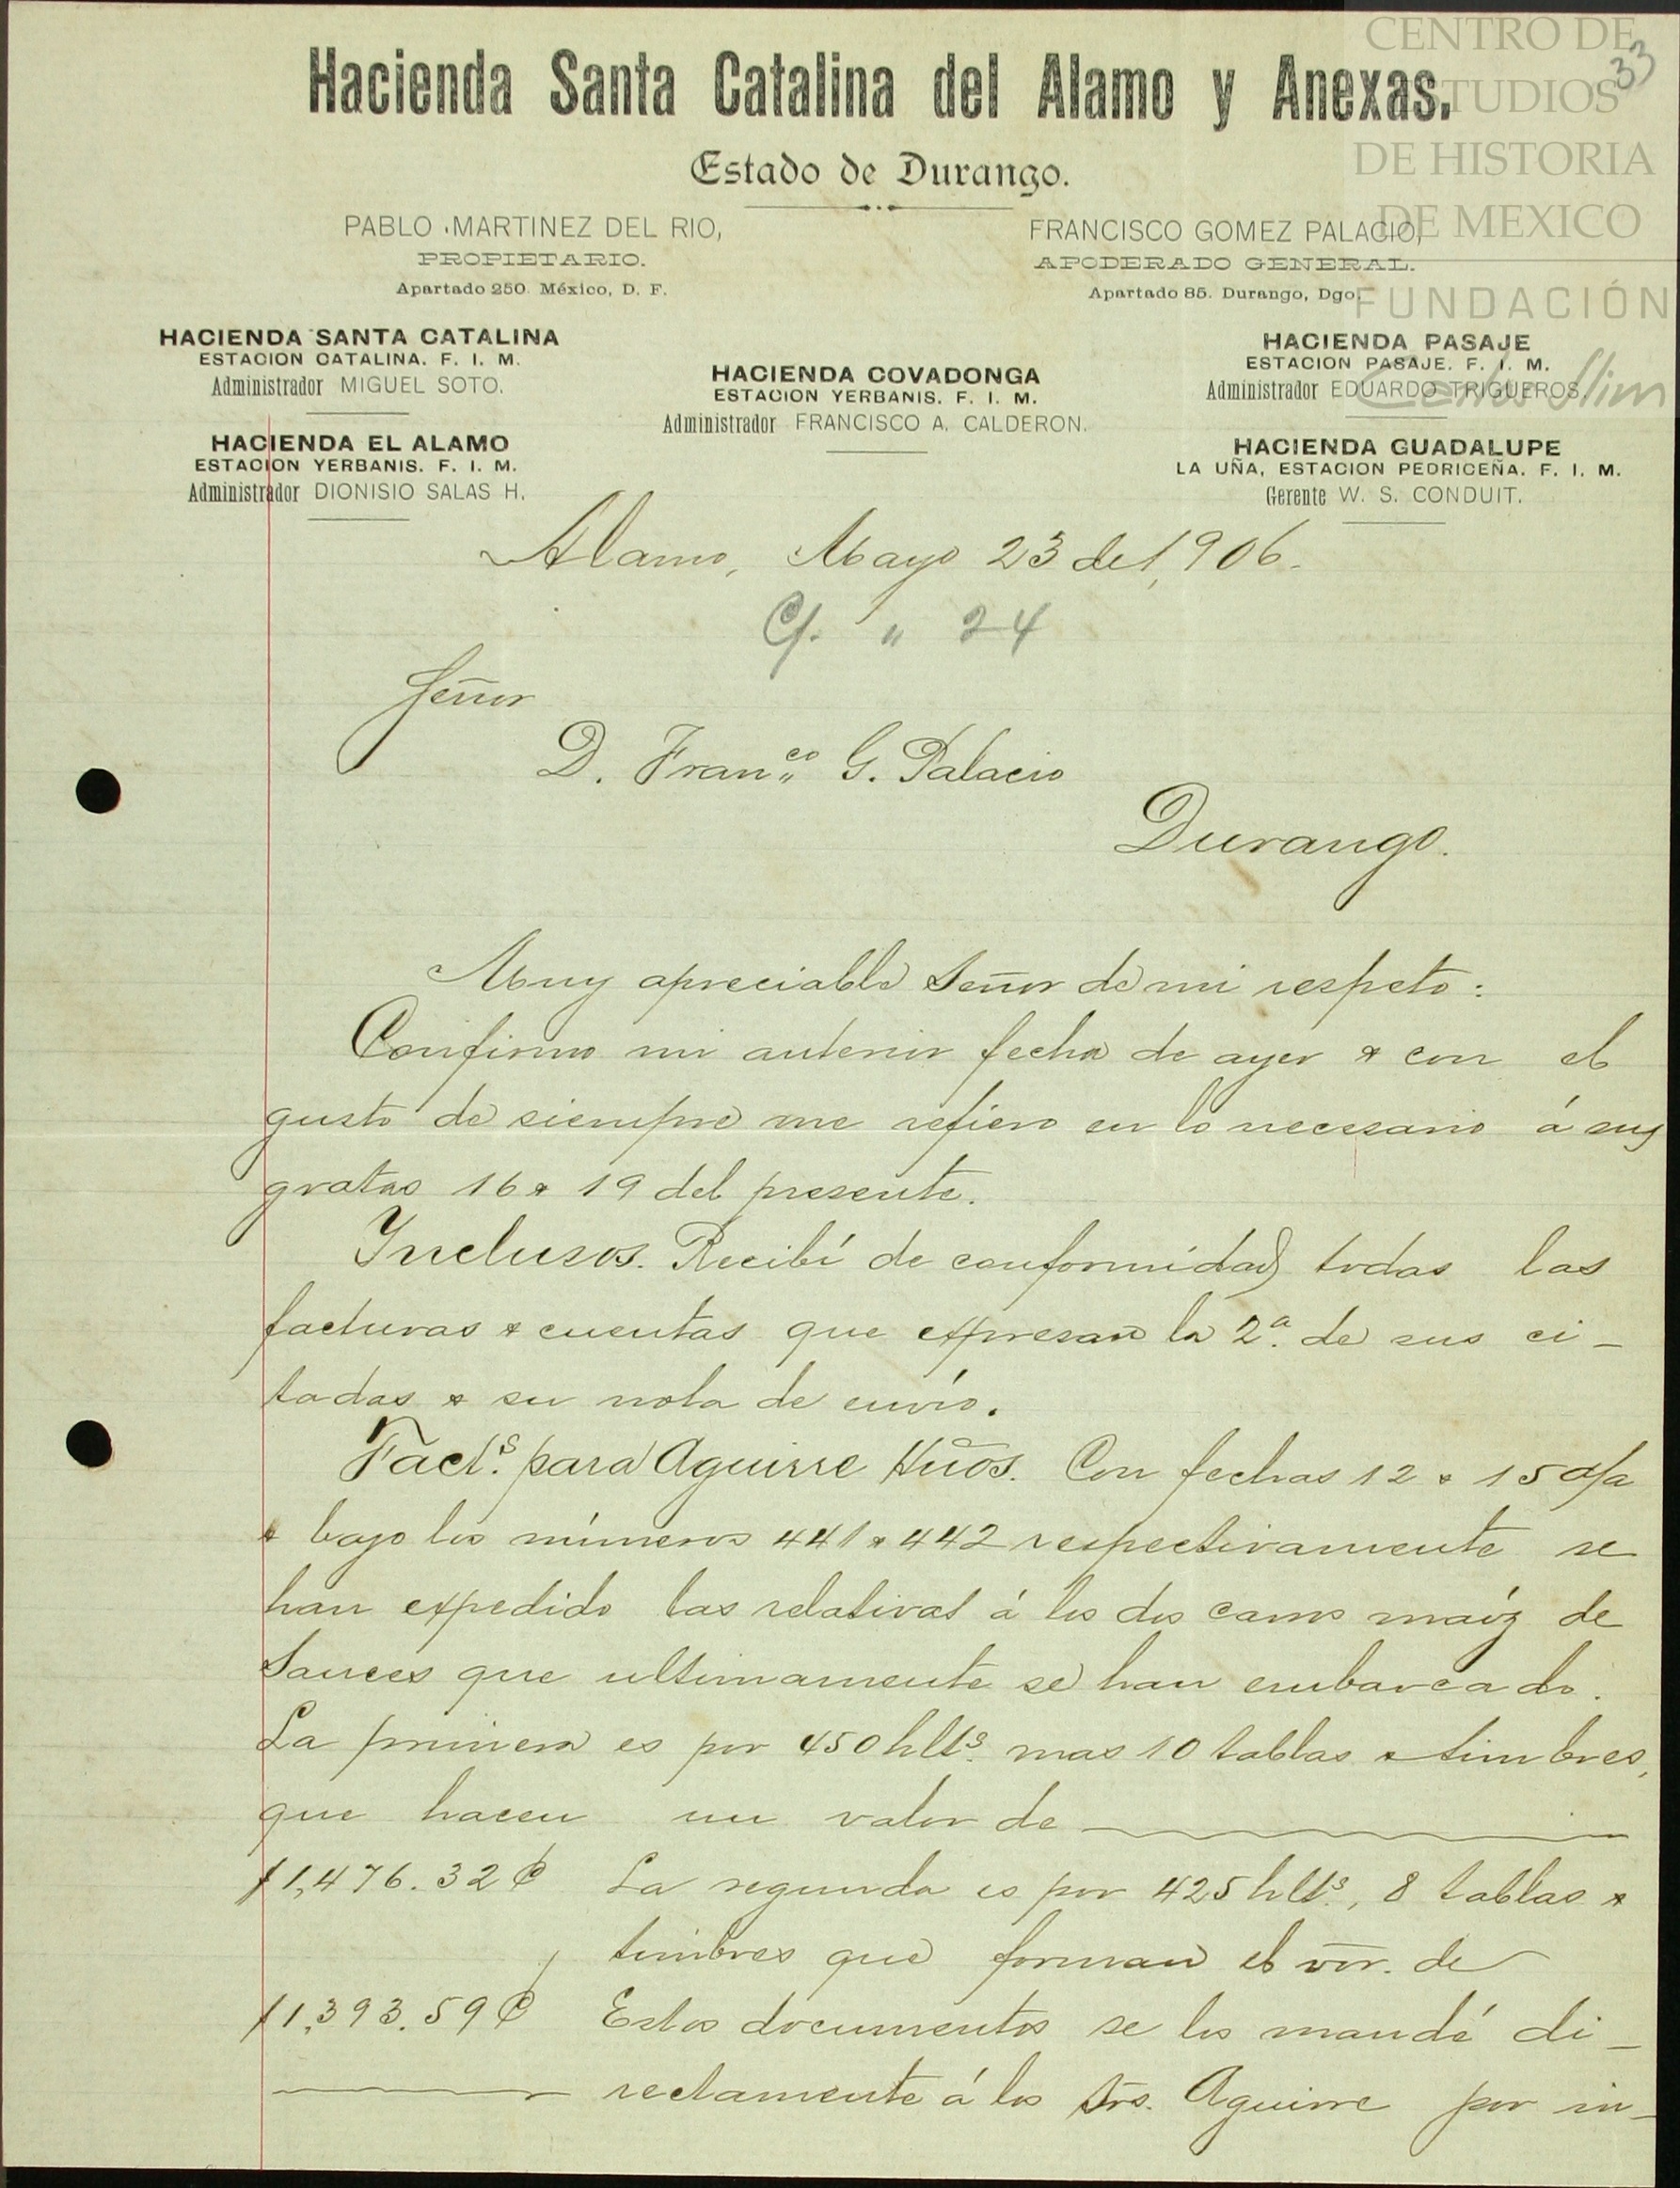 CENTRO DE
ESTUDIOS
DE HISTORIA
DE MEXICO
FUNDACIÓN
Carlos Slim
33
Hacienda Santa Catalina del Alamo y Anexas.
Estado de Durango.
PABLO MARTINEZ DEL RIO,
PROPIETARIO.
Apartado 250. México, D. F.
FRANCISCO GOMEZ PALACIO,
APODERADO GENERAL.
Apartado 85. Durango, Dgo.
HACIENDA SANTA CATALINA
ESTACION CATALINA. F. I. M.
Administrador MIGUEL SOTO.
HACIENDA EL ALAMO
ESTACION YERBANIS. F. I. M.
Administrador DIONISIO SALAS H.
HACIENDA COVADONGA
ESTACION YERBANIS. F. I. M.
Administrador FRANCISCO A. CALDERON.
HACIENDA PASAJE
ESTACION PASAJE. F. I. M.
Administrador EDUARDO TRIGUEROS.
HACIENDA GUADALUPE
LA UÑA, ESTACION PEDRICEÑA. F. I. M.
Gerente W. S. CONDUIT.
Alamo, Mayo 23 de 1,906.
C/. " 24
Señor
D. Fran.co G. Palacio
Durango.
Muy apreciable Señor de mi respeto:
Confirmo mi anterior fecha de ayer & con el
gusto de siempre me refiero en lo necesario á sus
gratas 16 & 19 del presente.
Inclusos. Recibí de conformidad todas las
facturas & cuentas que expresan la 2ª. de sus ci-
tadas & su nota de envío.
Fact.s para Aguirre Hños. Con fechas 12 & 15 d/a
& bajo los números 441 & 442 respectivamente se
han expedido las relativas á los dos carros maíz de
Sauces que ultimamente se han embarcado.
La primera es por 450 hlts. mas 10 tablas & timbres,
que hacen un valor de
$1,476.32 ¢ La segunda es por 425 hlts., 8 tablas &
timbres que forman el vor. de
$1,393.59 ¢ Estos documentos se los mandé di-
rectamente á los Srs. Aguirre por in-